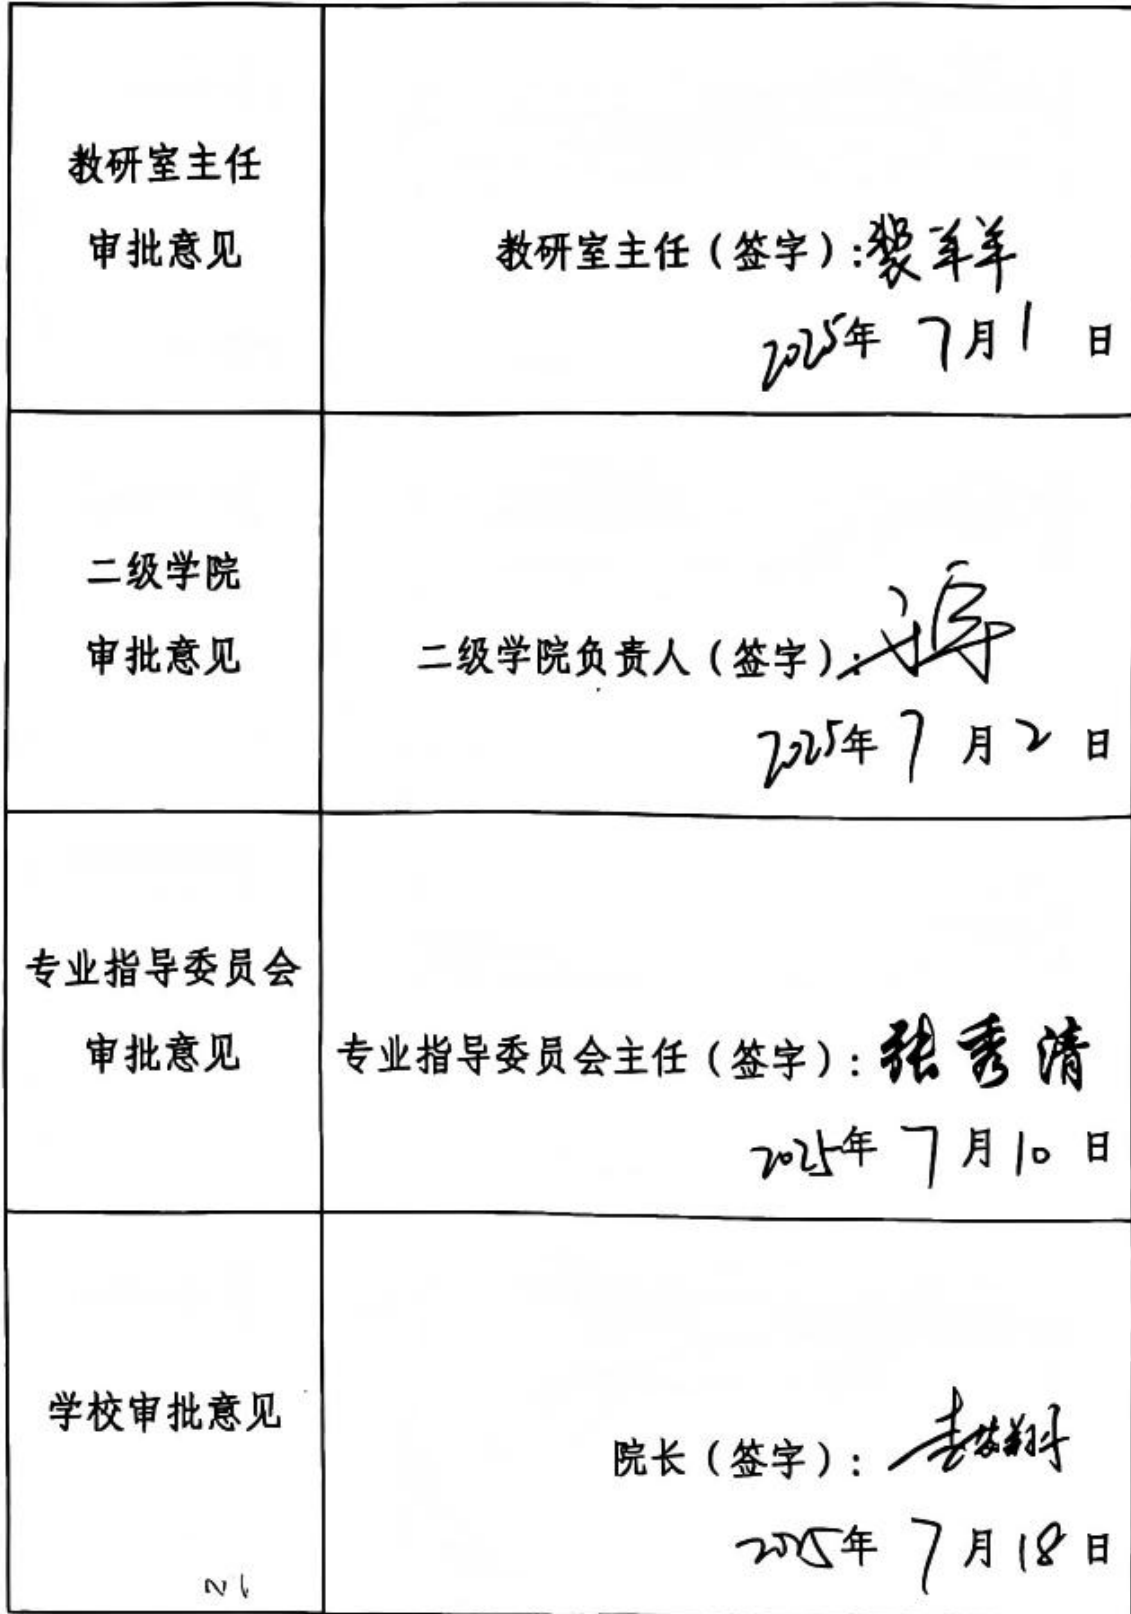 教研室主任
审批意见
教研室主任（签字）：裴羊羊
2025年 7月1 日
二级学院
审批意见
二级学院负责人（签字）：
2025年 7 月 2 日
专业指导委员会
审批意见
专业指导委员会主任（签字）：张秀清
2025年 7 月 10 日
学校审批意见
院长（签字）：
2025年 7 月 18 日
21